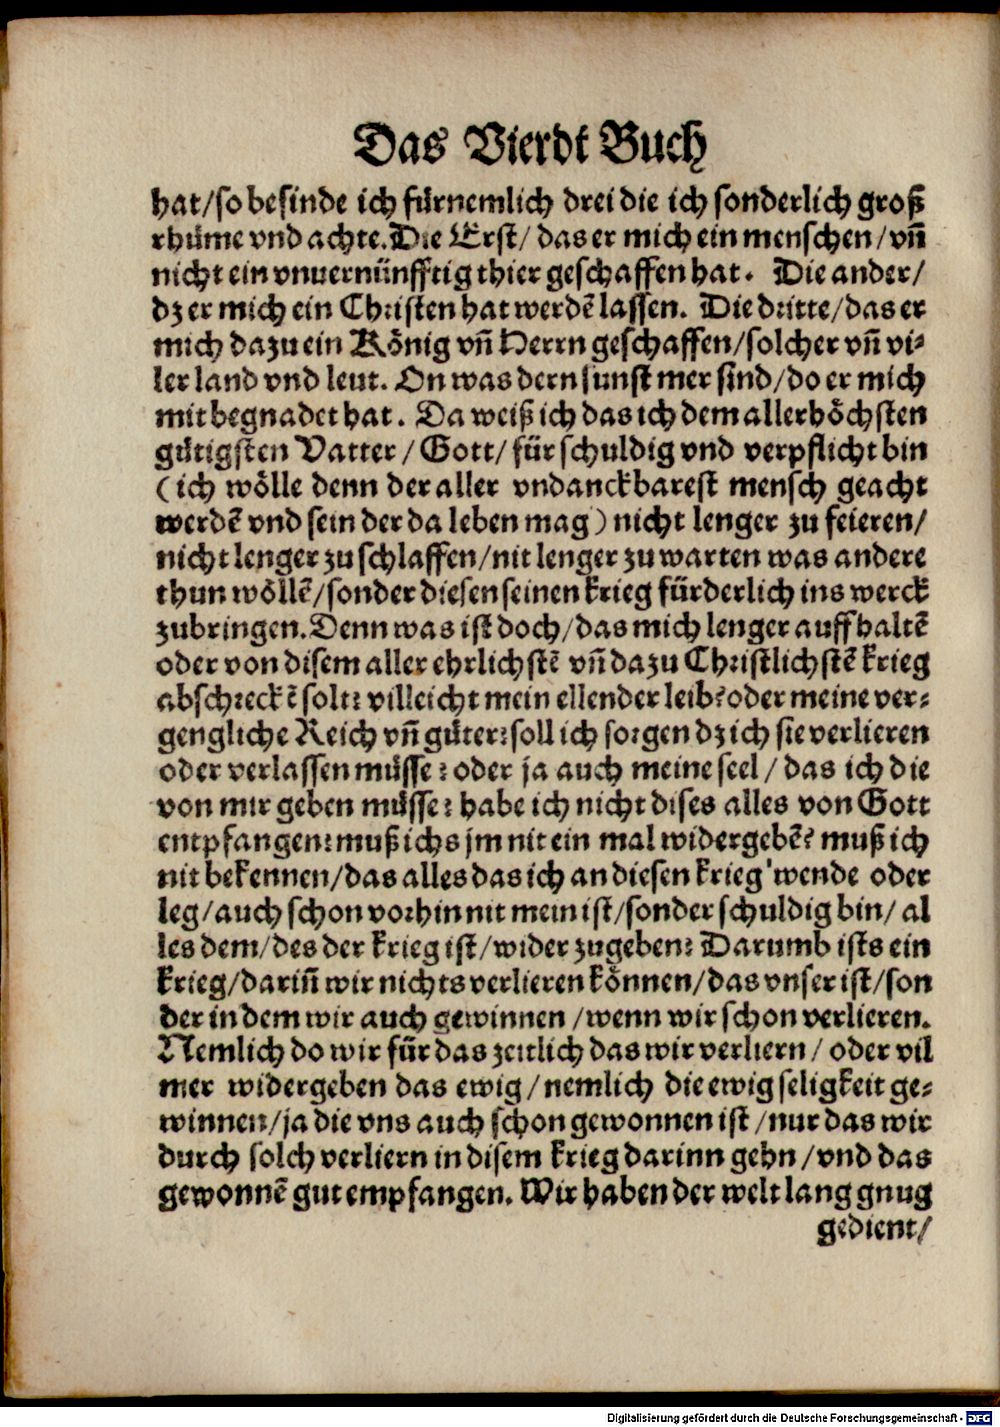 Das Vierdt Buch
hat/so befinde ich fürnemlich drei die ich sonderlich groß
rhüme vnd achte. Die Erst/ das er mich ein menschen/ vñ
nicht ein vnuernünfftig thier geschaffen hat. Die ander/
dz er mich ein Christen hat werdẽ lassen. Die dritte/das er
mich dazu ein König vñ Herrn geschaffen/solcher vñ vi-
ler land vnd leut. On was dern sunst mer sind/do er mich
mit begnadet hat. Da weiß ich das ich dem allerhöchsten
gütigsten Vatter/ Gott/ für schuldig vnd verpflicht bin
(ich wölle denn der aller vndanckbarest mensch geacht
werdẽ vnd sein der da leben mag) nicht lenger zu feieren/
nicht lenger zu schlaffen/nit lenger zu warten was andere
thun wöllẽ/sonder diesen seinen krieg fürderlich ins werck
zubringen. Denn was ist doch/das mich lenger auffhaltẽ
oder von disem aller ehrlichstẽ vñ dazu Christlichstẽ krieg
abschreckẽ solt? villeicht mein ellender leib? oder meine ver-
gengliche Reich vñ güter? soll ich sorgen dz ich sie verlieren
oder verlassen müsse? oder ja auch meine seel/ das ich die
von mir geben müsse? habe ich nicht dises alles von Gott
entpfangen? muß ichs jm nit ein mal widergebẽ? muß ich
nit bekennen/das alles das ich an diesen krieg wende oder
leg/auch schon vorhin nit mein ist/sonder schuldig bin/ al
les dem/des der krieg ist/wider zugeben? Darumb ists ein
krieg/darin̄ wir nichts verlieren können/das vnser ist/son
der in dem wir auch gewinnen/wenn wir schon verlieren.
Nemlich do wir für das zeitlich das wir verliern/ oder vil
mer widergeben das ewig/nemlich die ewig seligkeit ge-
winnen/ja die vns auch schon gewonnen ist/nur das wir
durch solch verliern in disem krieg darinn gehn/vnd das
gewonnẽ gut empfangen. Wir haben der welt lang gnug
gedient/
Digitalisierung gefördert durch die Deutsche Forschungsgemeinschaft - DFG